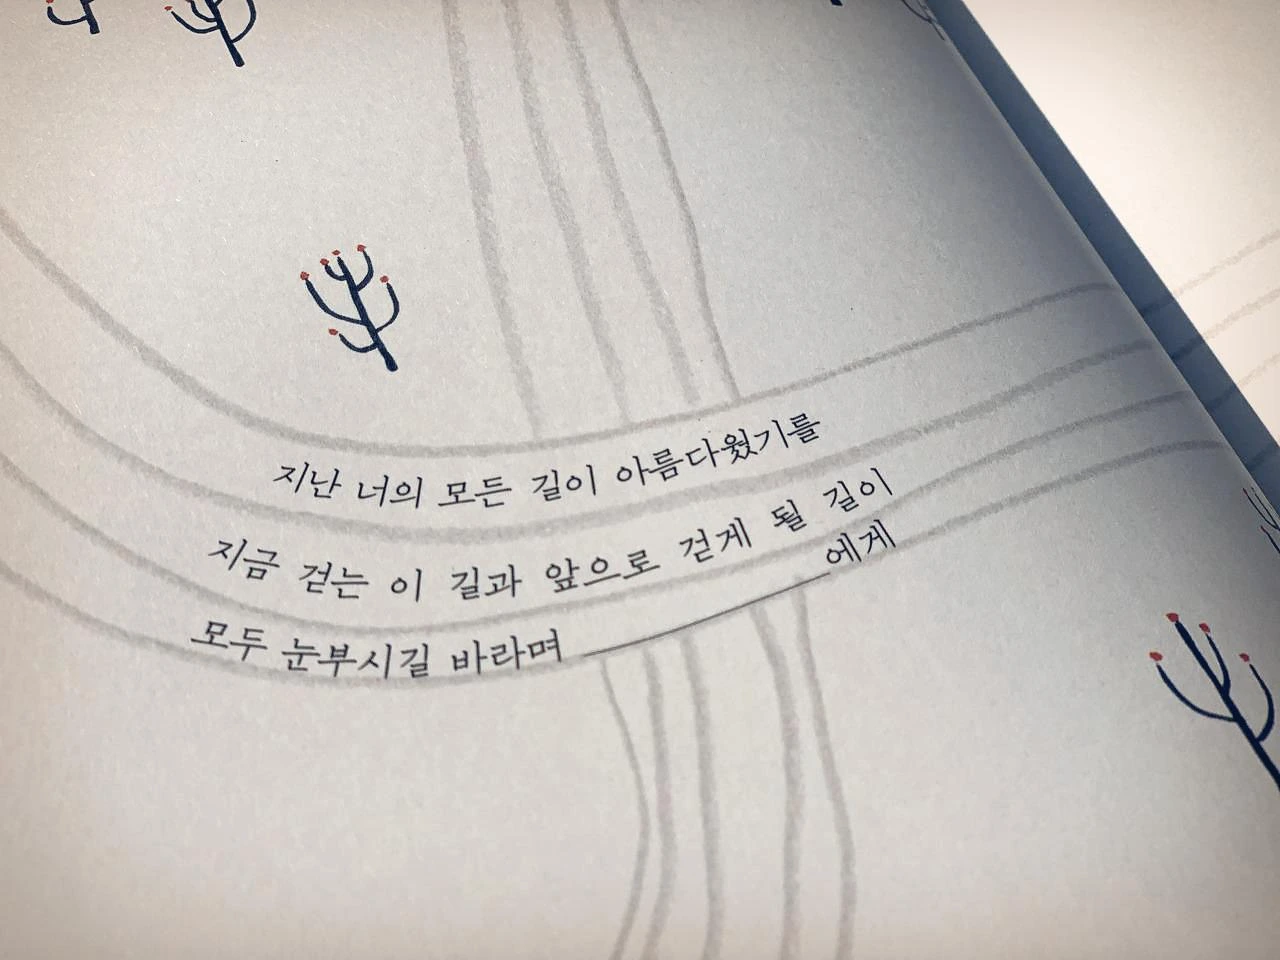 지난 너의 모든 길이 아름다웠기를
지금 걷는 이 길과 앞으로 걷게 될 길이
모두 눈부시길 바라며 ________에게